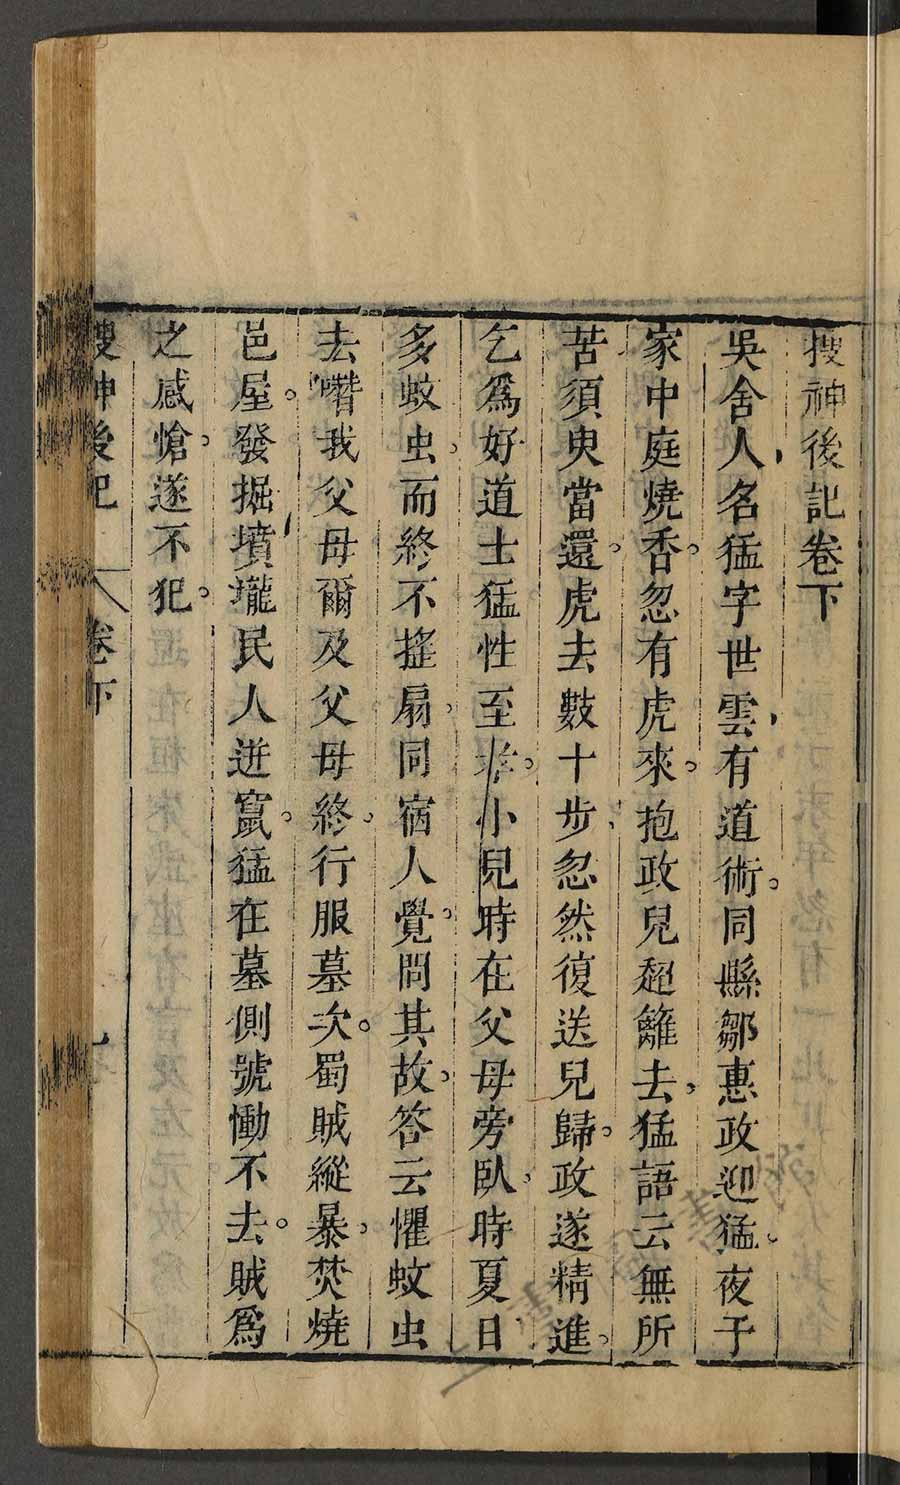 搜神後記卷下
吳舍人名猛字世雲有道術。同縣鄒惠政迎猛。夜于
家中庭燒香。忽有虎來。抱政兒超籬去。猛語云無所
苦須臾當還。虎去數十步忽然復送兒歸。政遂精進。
乞爲好道士猛性至孝。小兒時在父母旁臥。時夏日
多蚊虫。而終不搖扇。同宿人覺。問其故。答云懼蚊虫
去噆我父母爾及父母終。行服墓次。蜀賊縱暴。焚燒
邑屋。發掘墳壠民人迸竄。猛在墓側號慟不去。賊爲
之感愴。遂不犯。
搜神後記 卷下 一